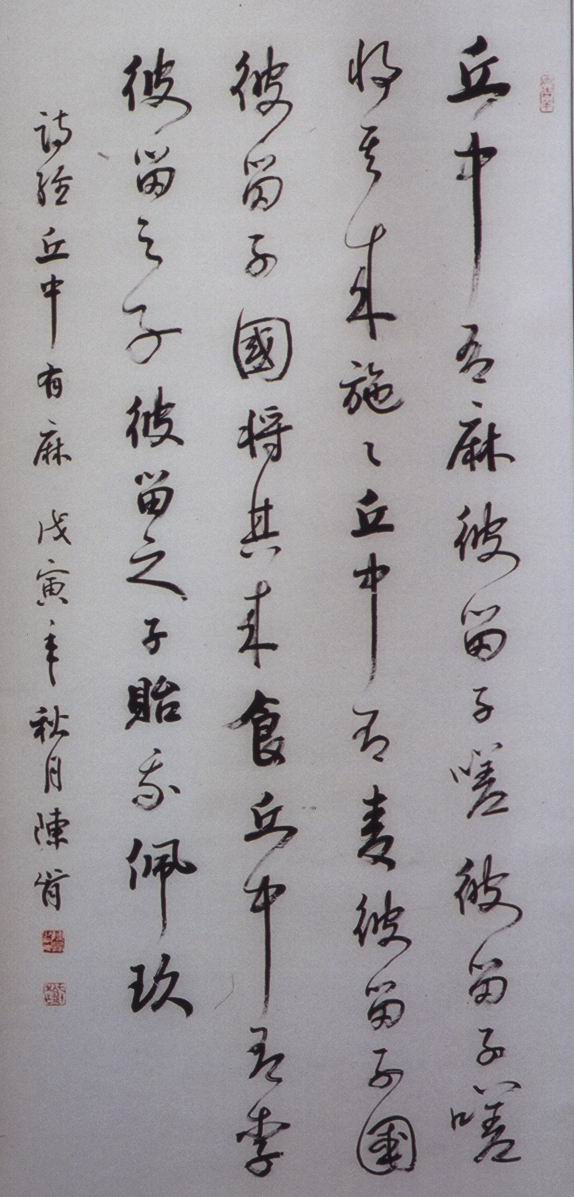 丘中有麻彼留子嗟彼留子嗟
将其来施〻丘中有麦彼留子国
彼留子國将其来食丘中有李
彼留之子彼留之子貽我佩玖
詩經丘中有麻 戊寅年秋月陳肯